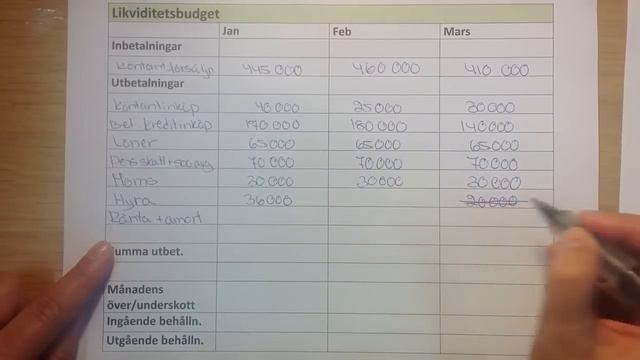 Likviditetsbudget
Jan Feb Mars
Inbetalningar
Kontantförsäljn 445 000 460 000 410 000
Utbetalningar
Kontantinköp 40 000 25 000 20 000
Bet kreditinköp 170 000 180 000 140 000
Löner 65 000 65 000 65 000
Pers skatt + soc avg 70 000 70 000 70 000
Moms 30 000 30 000 30 000
Hyra 36 000 20 000
Ränta + amort
umma utbet.
Månadens
över/underskott
Ingående behålln.
Utgående behålln.